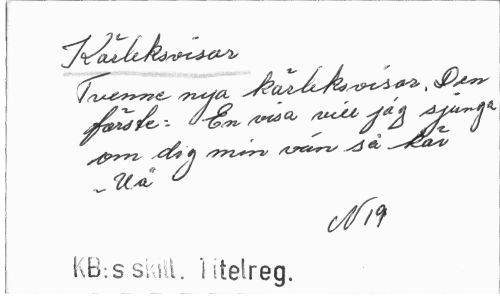 Kärleksvisor
Tvenne nya kärleksvisor. Den
förste: En visa vill jag sjunga
om dig min vän så kär
- Uå
N 19
KB:s skill. Titelreg.